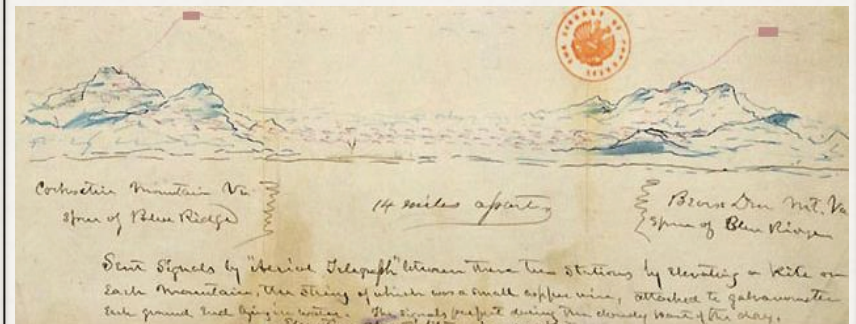 THE LIBRARY OF CONGRESS
Cohocton Mountain Va. 14 miles apart. Bear's Den Mt. Va.
Spur of Blue Ridge Spur of Blue Ridge
Sent Signals by "Aerial Telegraph" between these two Stations by elevating a Kite on
each Mountain, the string of which was a small copper wire, attached to galvanometer
each ground end lying in water. The signals perfect during the cloudy part of the day.